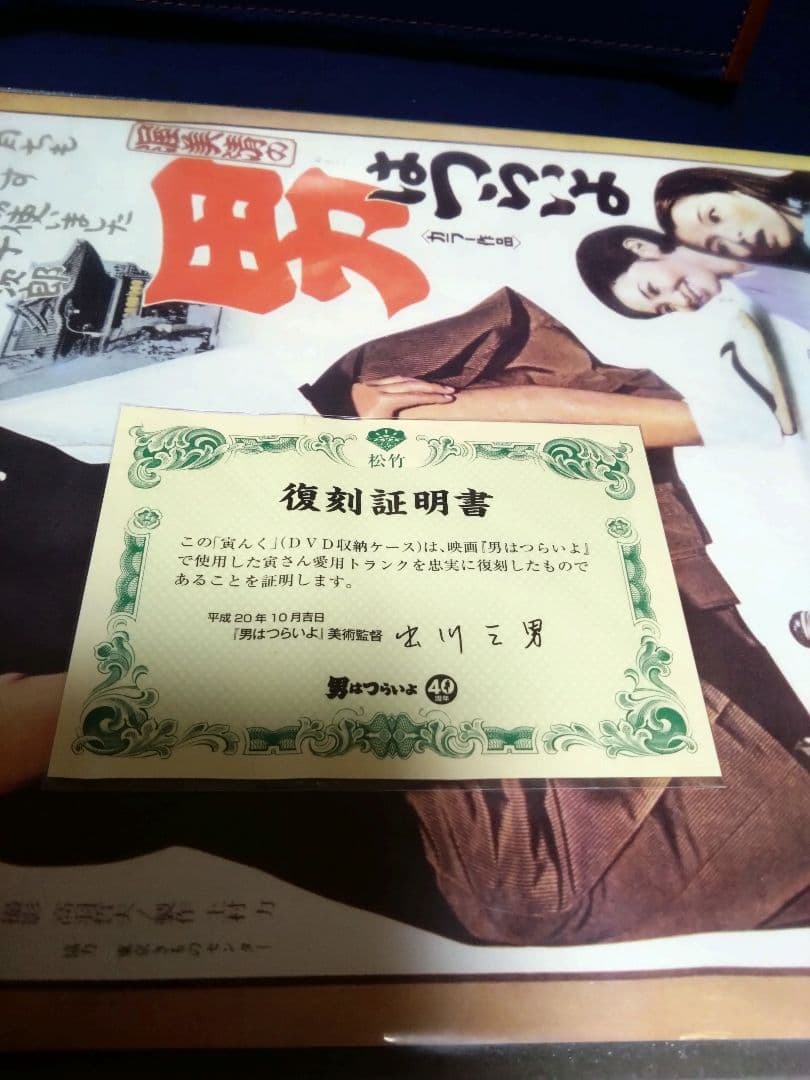 渥美清の
男はつらいよ
〈カラー作品〉
使いました
次郎
松竹
復刻証明書
この「寅んく」(DVD収納ケース)は、映画『男はつらいよ』
で使用した寅さん愛用トランクを忠実に復刻したもので
あることを証明します。
平成20年10月吉日
『男はつらいよ』美術監督 出川三男
男はつらいよ 40周年
製作 上村力
協力 東京きものセンター